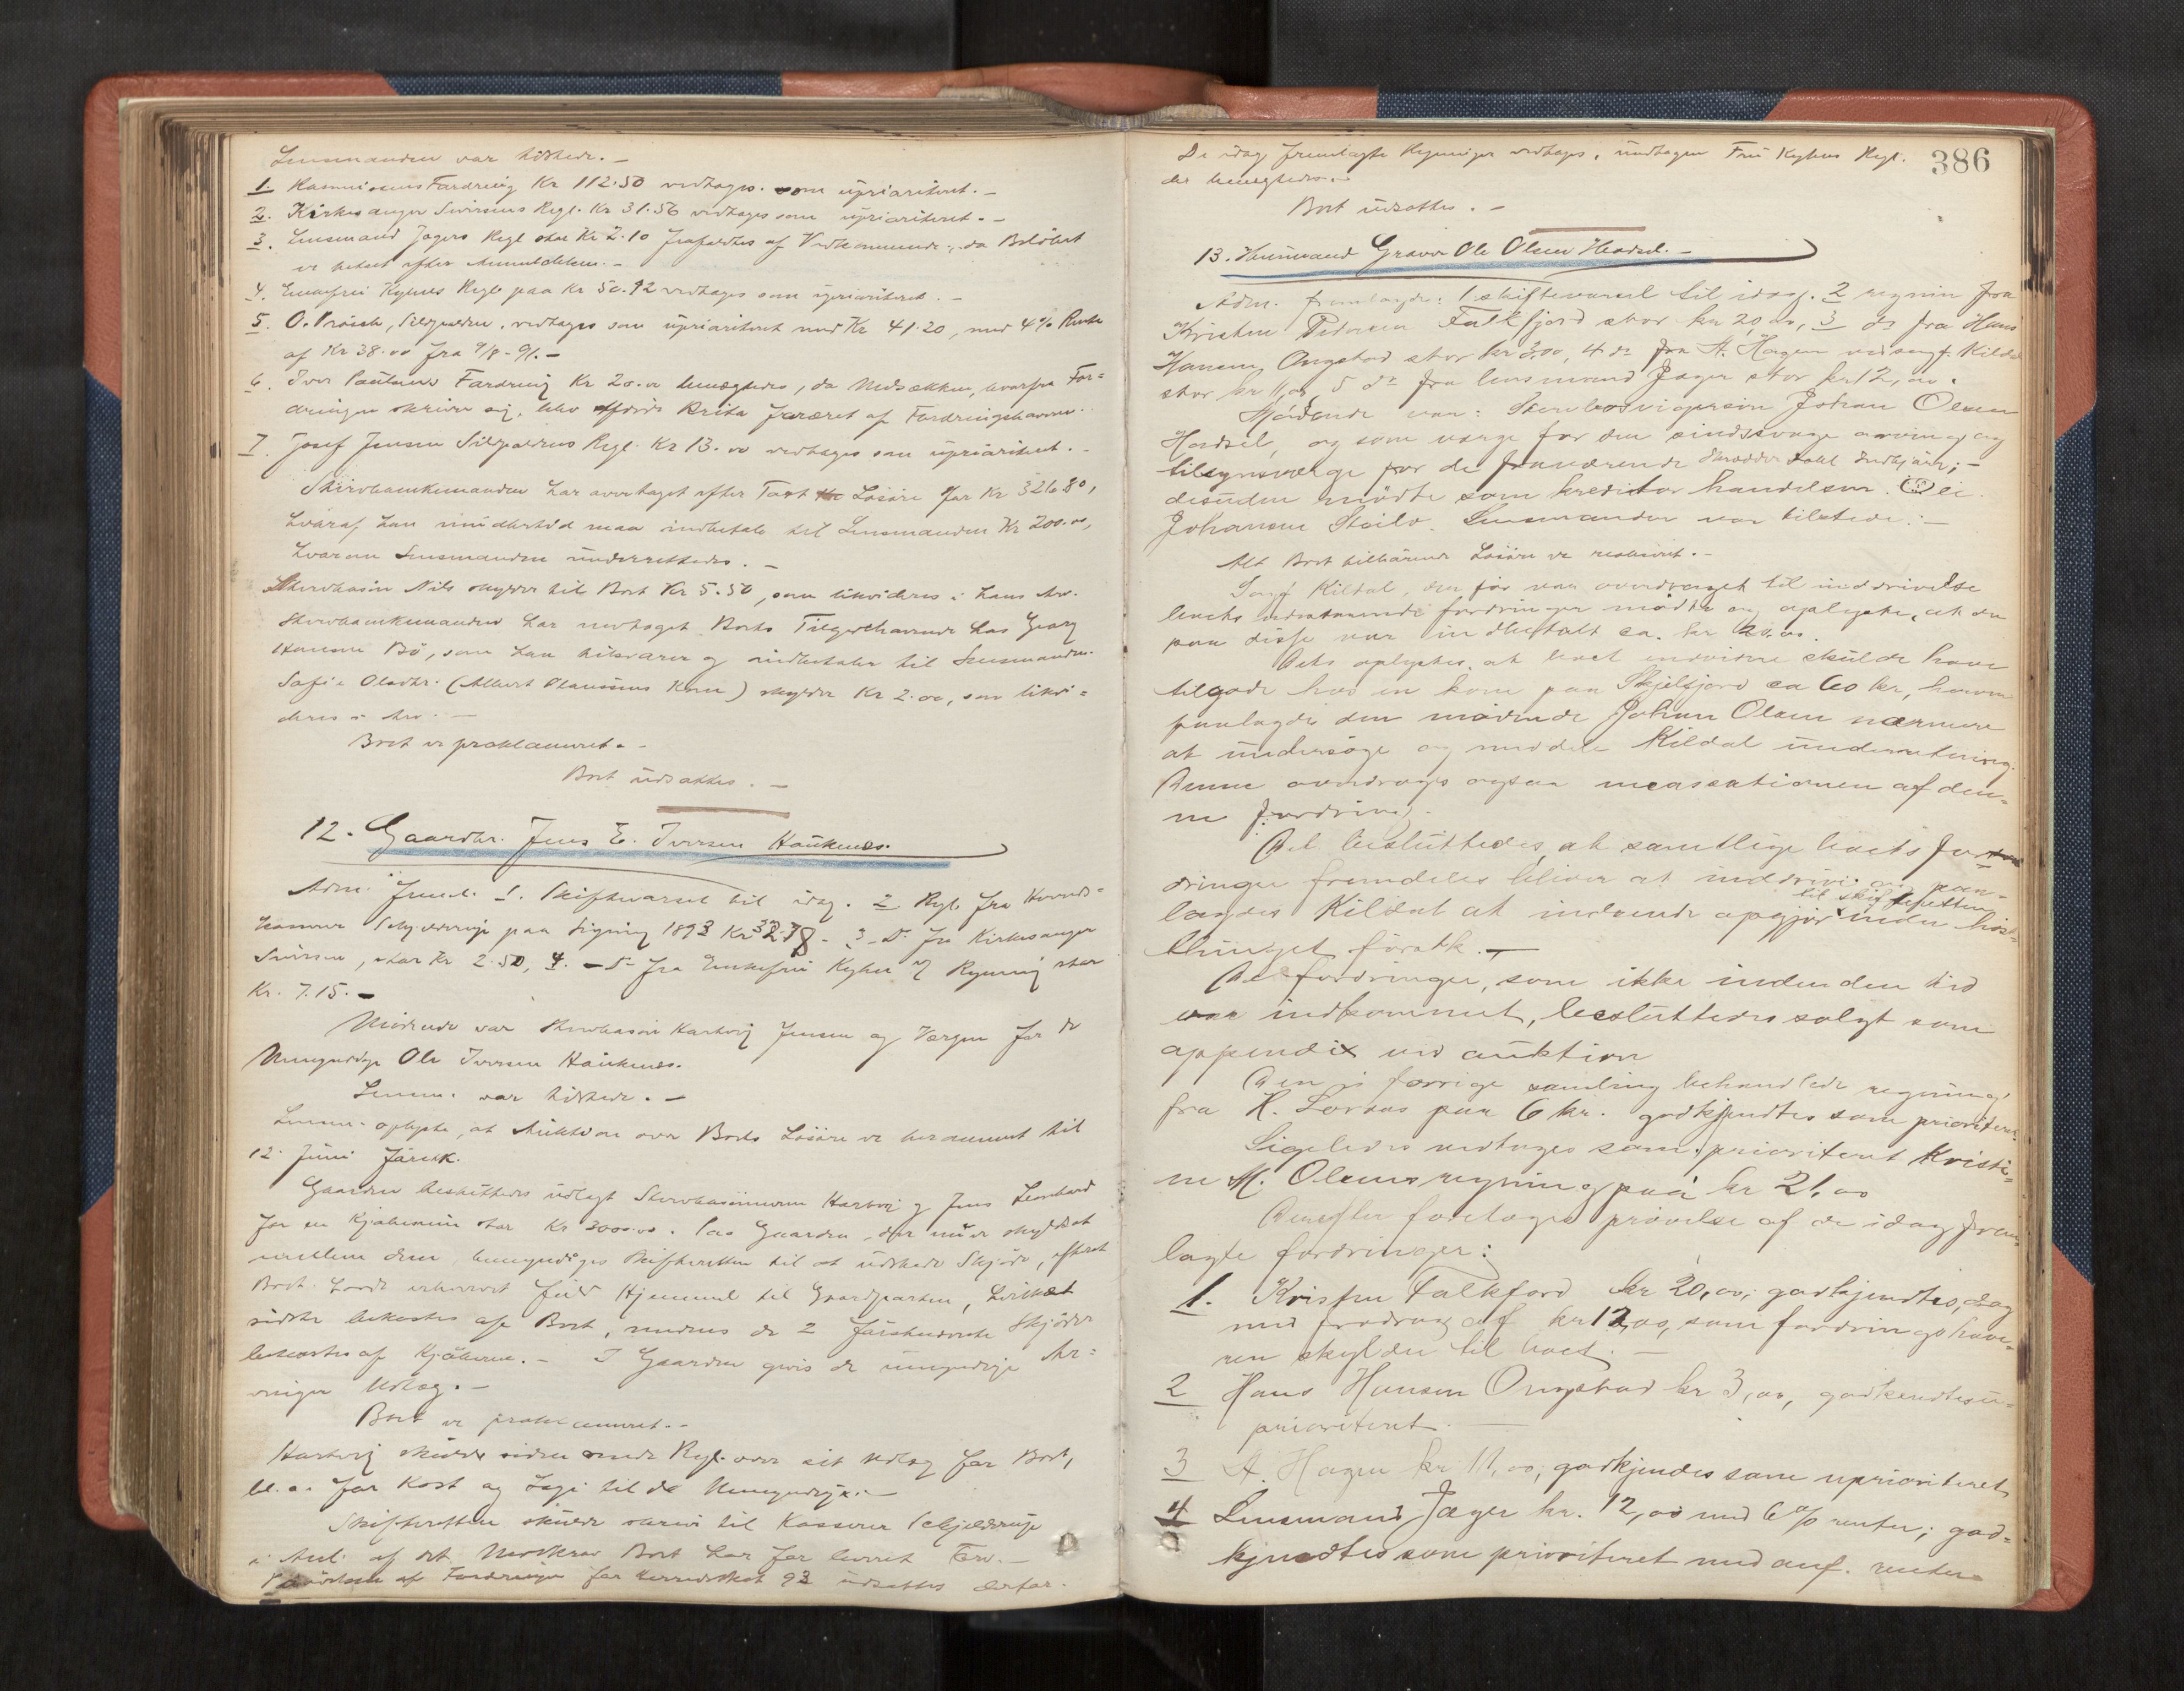 Lensmanden var tilstede. –
1. Rasmussens Fordring Kr 112.50 vedtages som uprioriteret. –
2. Kirkesanger Siversens Regl. Kr 31.56 vedtages som uprioriteret. –
3. Lensmand Jægers Regl stor Kr 2.10 frafaldtes af Vedkommende, da Beløbet
er betalt efter Anmeldelsen. –
4. Enkefru Kyhns Regl paa Kr 50.92 vedtages som uprioriteret. –
5. O. , Sildpolden, vedtages som uprioriteret med Kr 41.20, med 4% Rente
af Kr 38.00 fra 9/8-91. –
6. Iver Paulsens Fordring Kr 20.00 benægtedes, da Nedsækken, hvorfra For=
dringen skriver sig, blev foræret af Fordringshaveren.
7. Josef Jensen Sildpoldens Regl. Kr 13.00 vedtages som uprioriteret. –
Stervboenkemanden har overtaget efter Taxt Løsøre for Kr 326.80,
hvoraf han imidlertid maa indbetale til Lensmanden Kr 200.00,
hvorom Lensmanden underrettedes. –
Stervbosøn Nils skylder til Boet Kr 5.50, som likvideres i hans Arv.
Stervboenkemanden har modtaget Boets Tilgodehavende hos Georg
Hansen Bö, som han tilsvarer og indbetaler til Lensmanden.
Sofie Olsdtr. (Albert Olaussens Kone) skylder Kr 2.00, som likvi=
deres i Arv. –
Boet er proklameret. –
Boet udsattes. –
12. Gaardbr. Jens E. Iversen Haukenes.
Adm. freml. 1. Skiftevarsel til idag. 2 Regl. fra Herreds=
kasserer Schjelderup paa Ligning 1893 Kr 32.78 – 3 – Do fra Kirkesanger
Sivirsen, stor Kr 2.50, 4. – Do fra Enkefru Kyhn af Rynning stor
Kr. 7.15. –
Mødende var Stervbosøn Hartvig Jensen og Værgen for de
Umyndige Ole Iversen Haukenes.
Lensm. var tilstede. –
Lensm. oplyste, at Auktion over Boets Løsøre er berammet til
12. Juni förstk.
Gaarden besluttedes udlagt Stervbosønnerne Hartvig og Jens Leonhard
for en Kjøbesum stor Kr 3000.00. Paa Gaarden, der nu er skyldsat
mellem dem, bemyndiges Skifteretten til at udstede Skjøde, efterat
Boet havde erhvervet fuld Hjemmel til Gaardparten, hvilket
sidste bekostes af Boet, medens de 2 førstnævnte Skjøder
bekostes af Kjøberne. – I Gaarden gives de umyndige Ar=
vinger Udlæg. –
Boet er proklameret. –
Hartvig skulde siden sende Regl. over sit Udlæg for Boet,
bl. a. for Kost og Logi til de Umyndige. –
Skifteretten skulde skrive til Kasserer Schjelderup
i Anl. af det Modkrav Boet har for leveret Torv. –
Prøvelsen af Fordringen for Herredsskat 93 udsattes derfor.
386
De idag fremlagte Regninger vedtoges, undtagen Fru Kyhns Regl.
der benægtedes. –
Boet udsattes. –
13. Husmand Graver Ole Olsen Hadsel. –
Adm. fremlagde: 1 skiftevarsel til idag. 2 regning fra
Kristen Pedersen Falkfjord stor kr 20,00, 3 do fra Hans
Hansen Ongstad stor kr 3,00, 4 do fra A. Hagen ved sagf. Kildal
stor kr 11,00 5 do fra lensmand Jæger stor kr 12,00.
Mødende var: Stervbosvigersøn Johan Olsen
Hadsel, og som værge for den sindssvage arving og
tilsynsværge for de fraværende Skrædder Dahl ; –
desuden mødte som kreditor handelsm. Ole
Johansen Stoilo. Lensmanden var tilstede: –
Alt Boet tilhørende Løsøre er realiseret. –
Sagf Kildal, der før var overdraget til inddrivelse
boets udestaaende fordringer mødte og oplyste, at der
paa disse var indbetalt ca. kr 20.00.
Dets oplystes, at boet endvidere skulde have
tilgode hos en kone paa Skjelfjord ca 60 kr, hvorom
paalagdes den mødende Johan Olsen nærmere
at undersøge og meddele Kildal underretning.
Denne overdrages ogsaa incassationen af den=
ne fordring.
Det besluttedes, at samtlige boets for
dringer fremdeles bliver at inddrive og paa=
lagdes Kildal at indsende opgjør til skifteretten inden høst=
thinget førstk. –
De fordringer, som ikke inden den tid
var indkommet, besluttedes solgt som
appendix ved auktion
Den i forrige samling behandlede regning
fra K. Lorvas paa 6 kr. godkjendtes som prioriteret.
Ligeledes vedtoges som prioriteret Kristi=
ne M. Olsens regning paa kr 21,00
Derefter foretoges prøvelse af de idag frem=
lagte fordringer:
1. Kristen Falkfjord kr 20,00, godkjendtes, dog
med fradrag af kr 12,00, som fordringshave=
ren skylder til boet. –
2 Hans Hansen Ongstad kr 3,00, godkendtes u=
prioriteret. –
3 A. Hagen kr 11,00, godkjendes som uprioriteret
4 Lensmand Jæger kr. 12,00 med 6% renter; god=
kjendtes som prioriteret med anf. renter